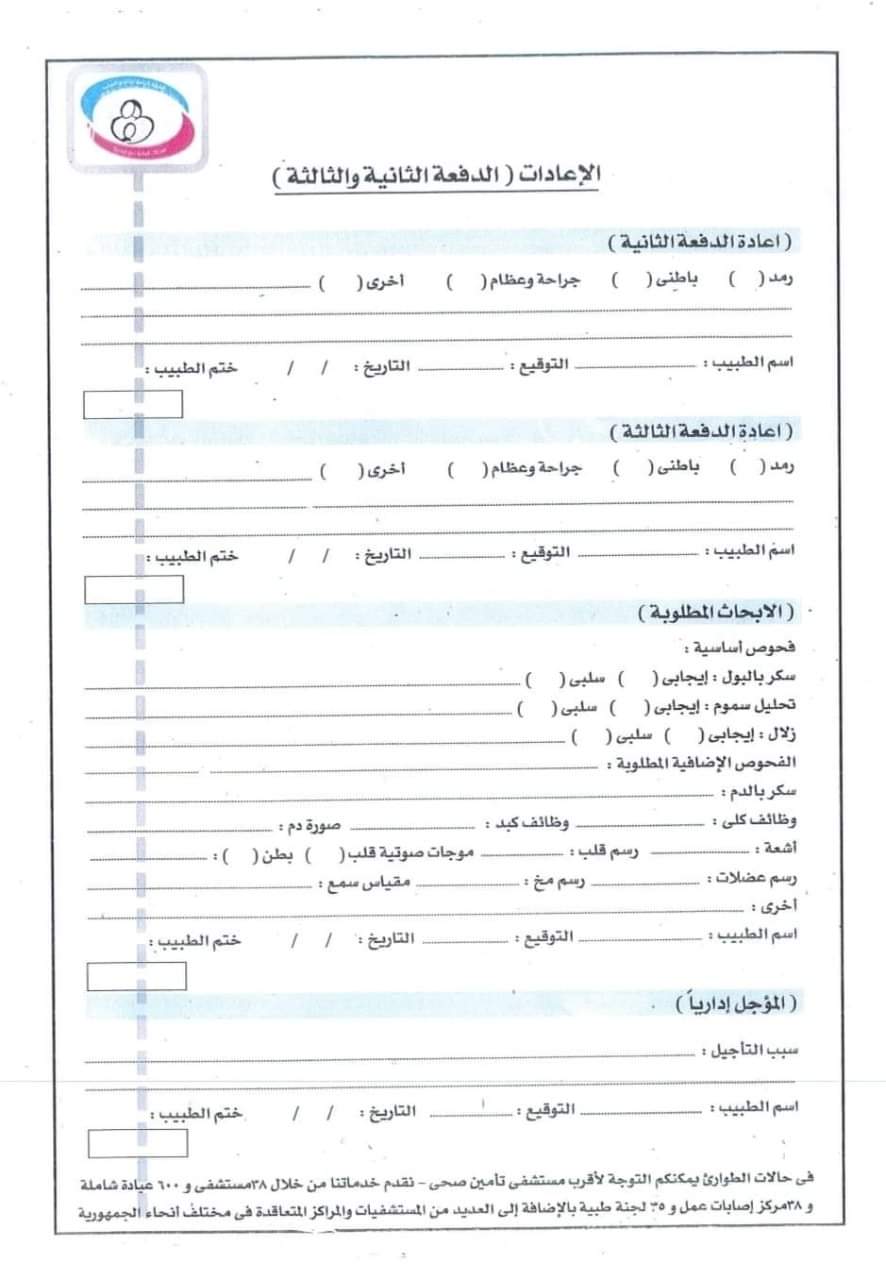 الإعادات ( الدفعة الثانية والثالثة )
( اعادة الدفعة الثانية )
رمد ( ) باطنى ( ) جراحة وعظام ( ) أخرى ( )
اسم الطبيب : التوقيع : التاريخ : / / ختم الطبيب :
( اعادة الدفعة الثالثة )
رمد ( ) باطنى ( ) جراحة وعظام ( ) أخرى ( )
اسم الطبيب : التوقيع : التاريخ : / / ختم الطبيب :
( الابحاث المطلوبة )
فحوص أساسية :
سكر بالبول : إيجابى ( ) سلبى ( )
تحليل سموم : إيجابى ( ) سلبى ( )
زلال : إيجابى ( ) سلبى ( )
الفحوص الإضافية المطلوبة :
سكر بالدم :
وظائف كلى : وظائف كبد : صورة دم :
أشعة : رسم قلب : موجات صوتية قلب ( ) بطن ( ) :
رسم عضلات : رسم مخ : مقياس سمع :
أخرى :
اسم الطبيب : التوقيع : التاريخ : / / ختم الطبيب :
( المؤجل إدارياً )
سبب التأجيل :
اسم الطبيب : التوقيع : التاريخ : / / ختم الطبيب :
فى حالات الطوارئ يمكنكم التوجة لأقرب مستشفى تأمين صحى - نقدم خدماتنا من خلال ٣٨مستشفى و ٦٠٠ عيادة شاملة
و ٣٨مركز إصابات عمل و ٣٥ لجنة طبية بالإضافة إلى العديد من المستشفيات والمراكز المتعاقدة فى مختلف أنحاء الجمهورية